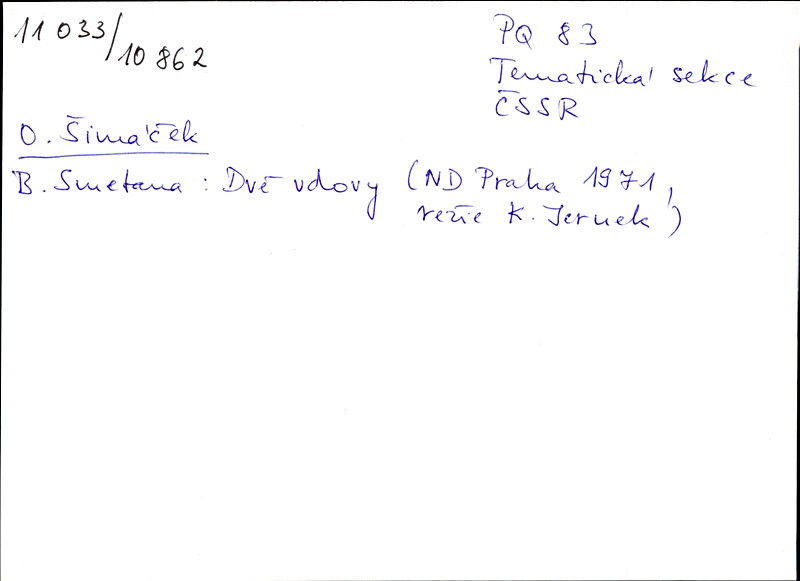 11 033/10 862
PQ 83
Tematická sekce
ČSSR
O. Šimáček
B. Smetana : Dvě vdovy (ND Praha 1971,
režie K. Jernek)